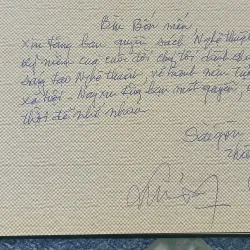 Bùi Bôn mến
xin tặng bạn quyển sách Nghệ thuật
kỷ niệm của cuộc đời chị tôi dành cho
sáng tạo Nghệ thuật, về
xã hội. Nay xin tặng bạn một quyển,
thời để nhớ nhau
Saigon